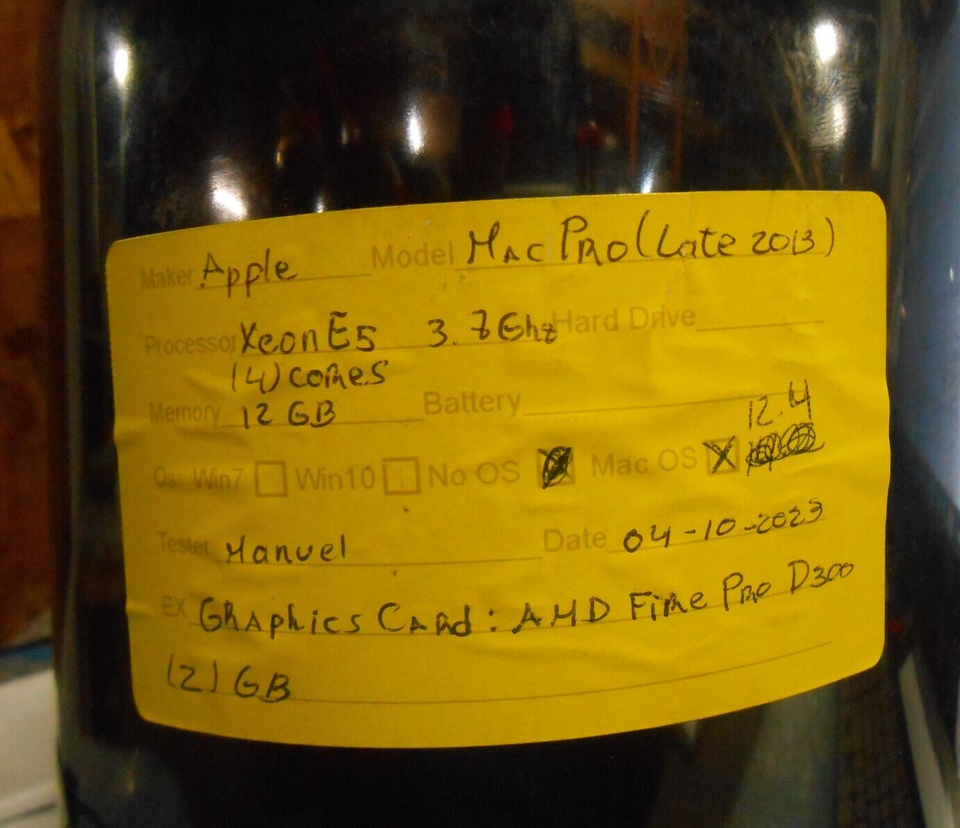 Maker Apple Model Mac Pro (Late 2013)
Processor Xeon E5 3.7Ghz Hard Drive
(4) cores
Memory 12 GB Battery
12.4
Os: Win7 Win10 No OS Mac OS X
Tester Manuel Date 04-10-2023
EX Graphics Card: AMD Fire Pro D300
(2) GB